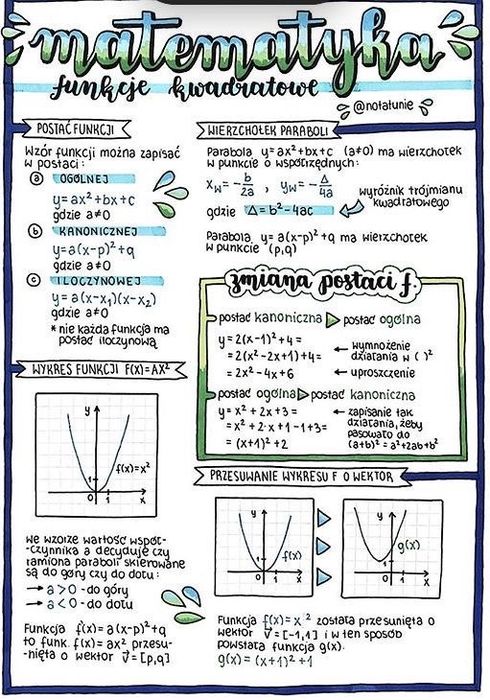 matematyka
funkcje kwadratowe
@notatunie
POSTAĆ FUNKCJI
Wzór funkcji można zapisać
w postaci:
a OGÓLNEJ
y=ax²+bx+c
gdzie a≠0
b KANONICZNEJ
y=a(x-p)²+q
gdzie a≠0
c ILOCZYNOWEJ
y=a(x-x₁)(x-x₂)
gdzie a≠0
* nie każda funkcja ma
postać iloczynową
WYKRES FUNKCJI F(X)=AX²
y
f(x)=x²
1
0 1 x
We wzorze wartość współ-
-czynnika a decyduje czy
ramiona paraboli skierowane
są do góry czy do dołu:
→ a>0 - do góry
→ a<0 - do dołu
Funkcja f(x)=a(x-p)²+q
to funk. f(x)=ax² przesu-
-nięta o wektor v⃗=[p,q]
WIERZCHOŁEK PARABOLI
Parabola y=ax²+bx+c (a≠0) ma wierzchołek
w punkcie o współrzędnych:
xw=-b/2a , yw=-Δ/4a
gdzie Δ=b²-4ac
wyróżnik trójmianu
kwadratowego
Parabola y=a(x-p)²+q ma wierzchołek
w punkcie (p,q)
zmiana postaci f.
postać kanoniczna ▷ postać ogólna
y=2(x-1)²+4=
=2(x²-2x+1)+4= ← wymnożenie
działania w ( )²
=2x²-4x+6 ← uproszczenie
postać ogólna ▷ postać kanoniczna
y=x²+2x+3= ← zapisanie tak
=x²+2·x+1-1+3= działania, żeby
pasowało do
=(x+1)²+2 (a+b)²=a²+2ab+b²
PRZESUWANIE WYKRESU F O WEKTOR
y
f(x)
1
0 1 x
y
g(x)
1
0 1 x
Funkcja f(x)=x² została przesunięta o
wektor v⃗=[-1,1] i w ten sposób
powstała funkcja g(x).
g(x)=(x+1)²+1